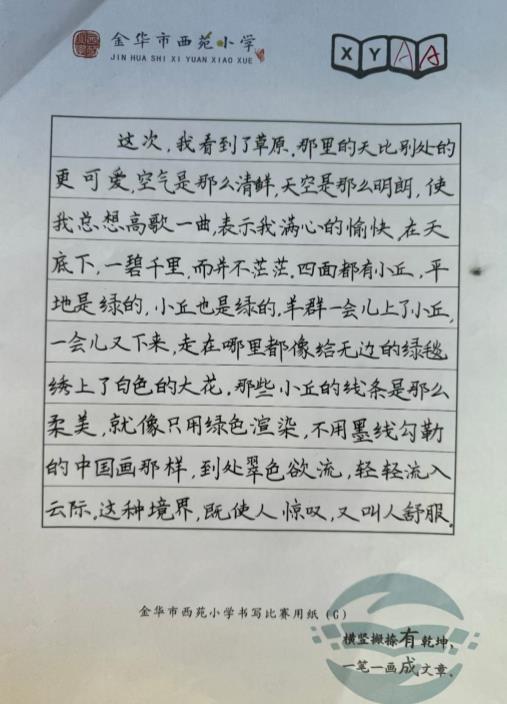 金华市西苑小学
JIN HUA SHI XI YUAN XIAO XUE
XYAA
这次,我看到了草原.那里的天比别处的
更可爱,空气是那么清鲜,天空是那么明朗,使
我总想高歌一曲,表示我满心的愉快.在天
底下,一碧千里,而并不茫茫.四面都有小丘,平
地是绿的,小丘也是绿的.羊群一会儿上了小丘,
一会儿又下来,走在哪里都像给无边的绿毯
绣上了白色的大花.那些小丘的线条是那么
柔美,就像只用绿色渲染,不用墨线勾勒
的中国画那样,到处翠色欲流,轻轻流入
云际.这种境界,既使人惊叹,又叫人舒服.
金华市西苑小学书写比赛用纸(G)
横竖撇捺有乾坤,
一笔一画成文章.